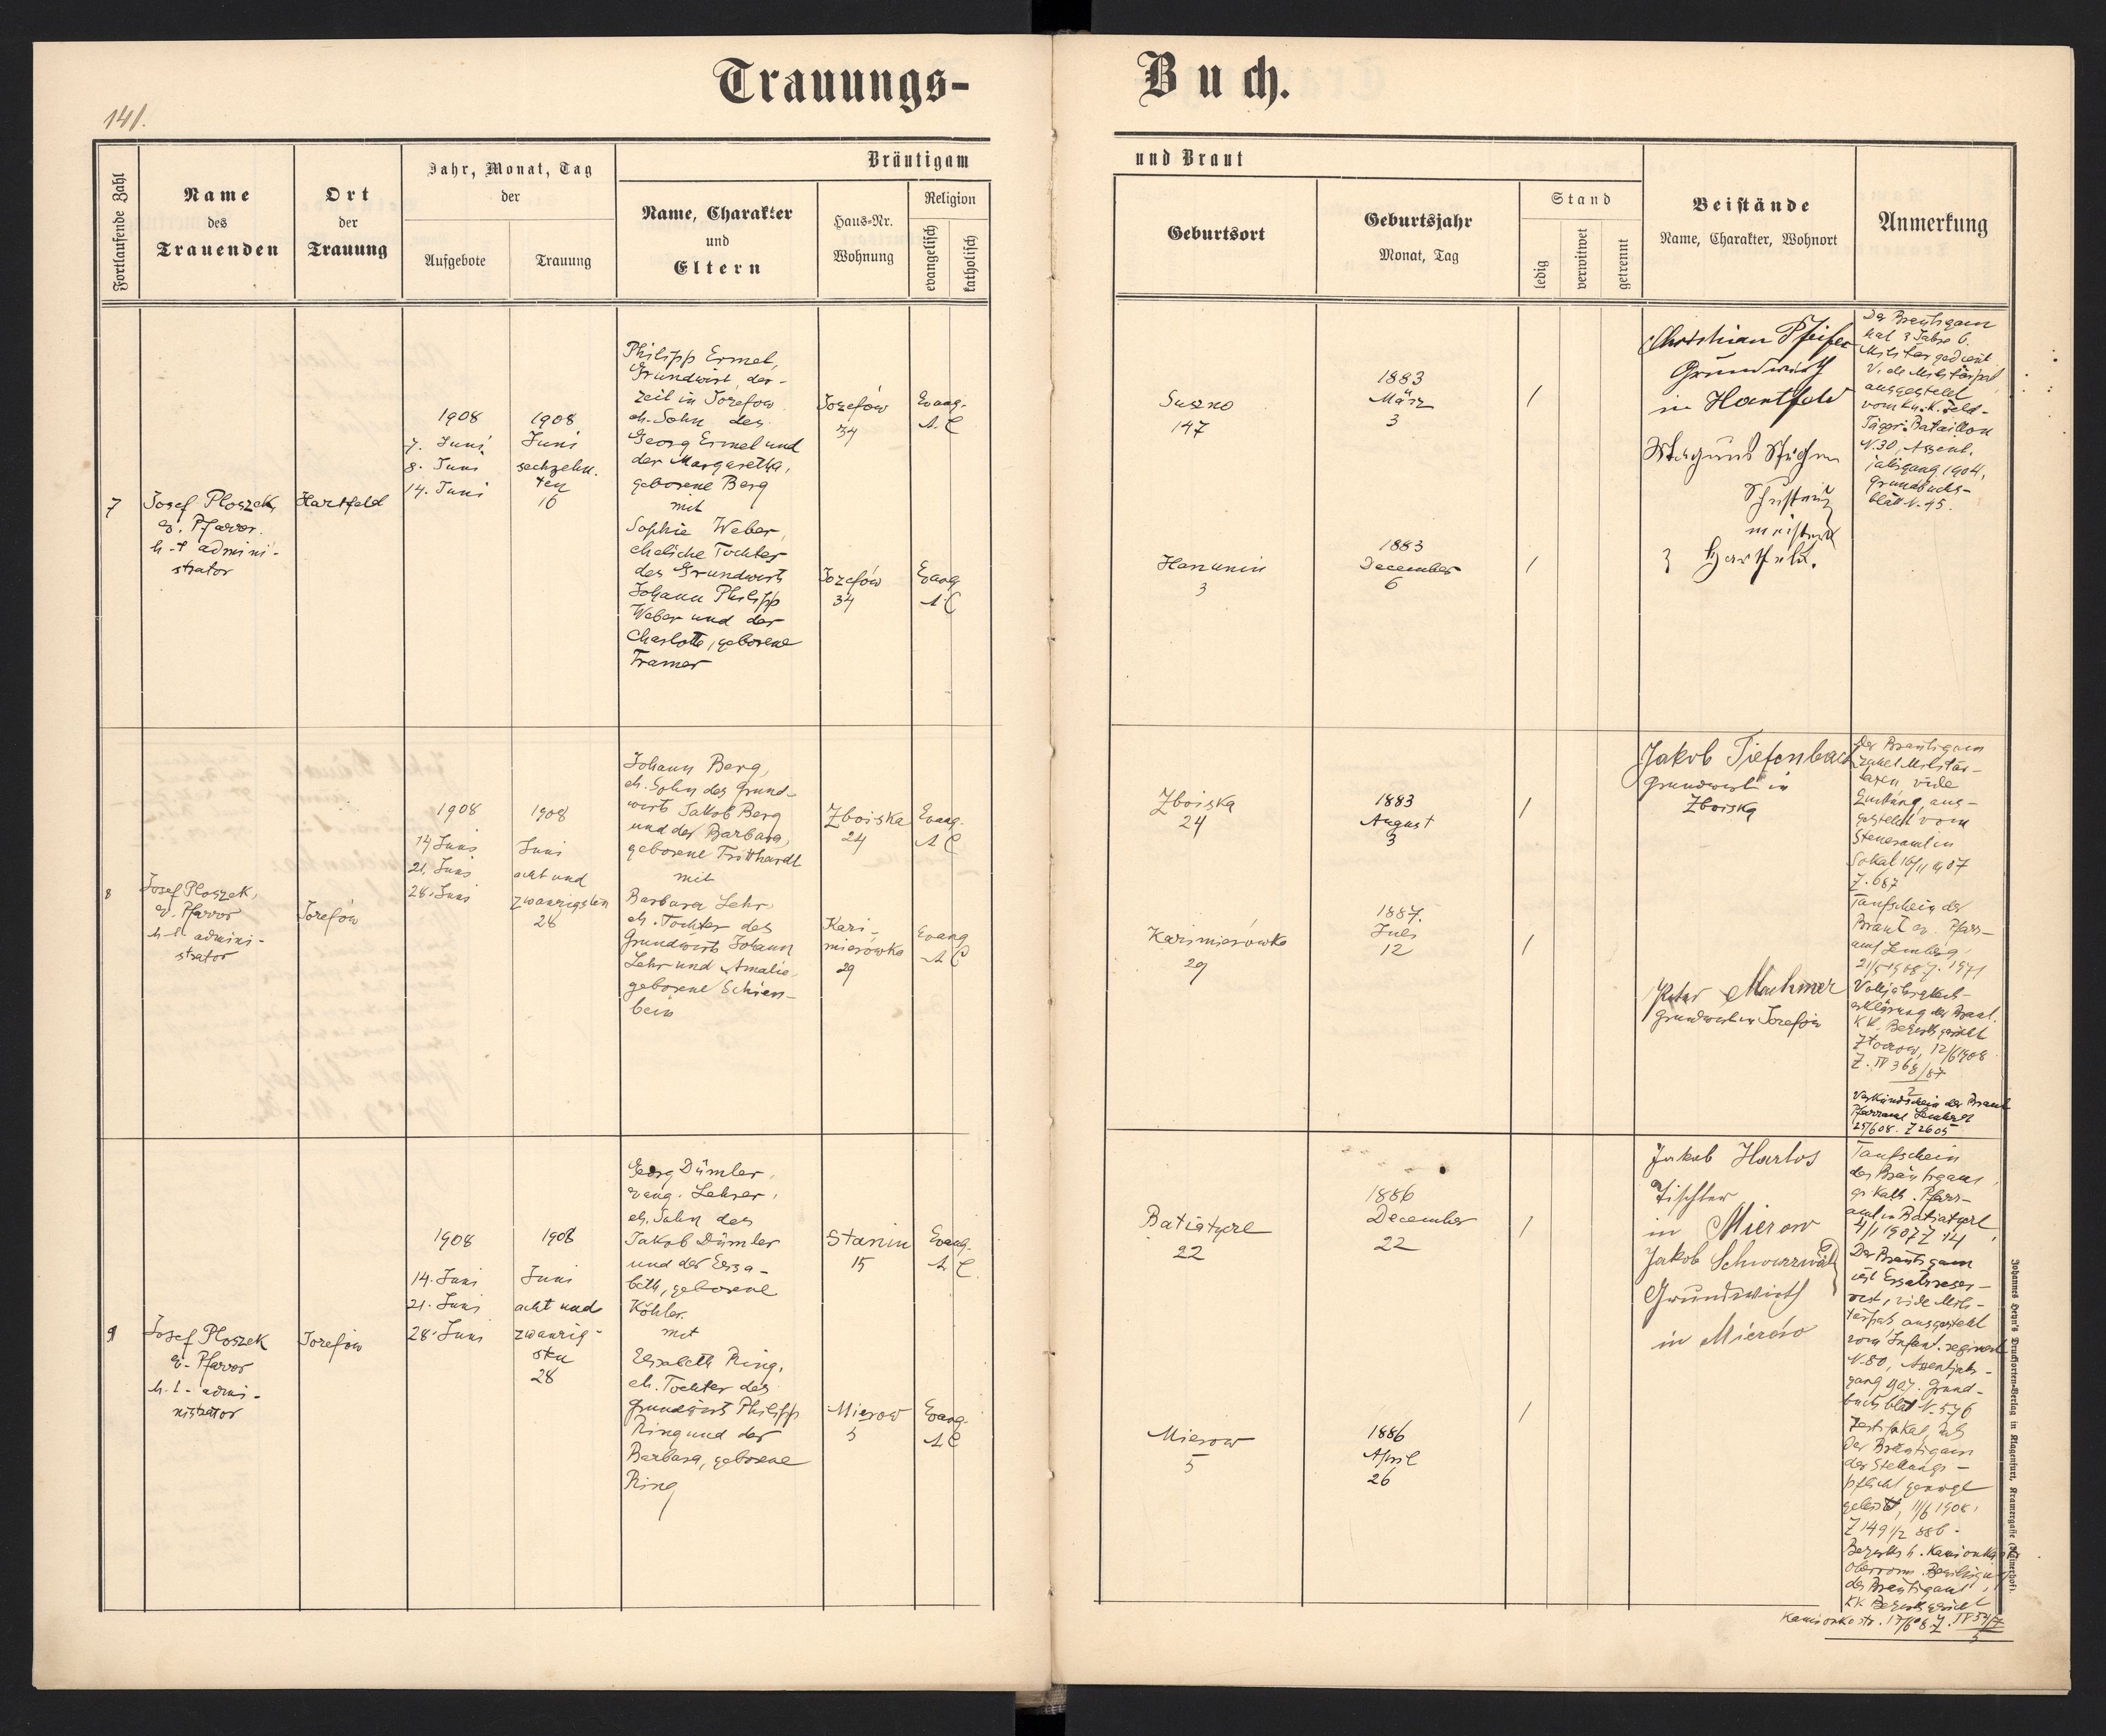 Trauungs-
Buch.
141.
Fortlaufende Zahl
Name
des
Trauenden
Ort
der
Trauung
Jahr, Monat, Tag
der
Aufgebote
Trauung
Bräutigam
Name, Charakter
und
Eltern
Haus-Nr.
Wohnung
Religion
evangelisch
katholisch
und Braut
Geburtsort
Geburtsjahr
Monat, Tag
Stand
ledig
verwitwet
getrennt
Beistände
Name, Charakter, Wohnort
Anmerkung
7
Josef Ploszek
ev. Pfarrer
h.-t admini-
strator
Hartfeld
1908
7. Juni
8. Juni
14. Juni
1908
Juni
sechzehn-
ten
16
Philipp Ermel,
Grundwirt, der-
zeit in Jozefow
eh. Sohn des
Georg Ermel und
der Margaretha,
geborene Berg
mit
Sophie Weber,
eheliche Tochter
des Grundwirts
Johann Philipp
Weber und der
Charlotte, geborene
Framer
Jozefów
34
Evang.
A. C
Jozefów
34
Evang
A C
Suszno
147
1883
März
3
/
Hanunin
3
1883
December
6
/
Christian Pfeifer
Grundwirth
in Hartfeld
Schuster
meister
Hartfeld.
Der Bräutigam
hat 3 Jahre b.
Militär gedient
v. de Militärpaß
ausgestellt
vom k.u.k. Feld-
Jäger-Bataillon
N.30, Assent.
jahrgang 1904,
Grundbuchs-
blatt N. 45.
8
Josef Ploszek,
ev. Pfarrer
h.t. admini-
strator
Jozefów
1908
14 Juni
21. Juni
28. Juni
1908
Juni
acht und
zwanzigsten
28
Johann Berg,
eh. Sohn des Grund-
wirts Jakob Berg
und der Barbara,
geborene Tritthardt
mit
Barbara Lehr,
eh. Tochter des
Grundwirts Johann
Lehr und Amalie,
geborene Schien-
bein
Zboiska
24
Evang.
A C
Kazi-
mierówka
29
Evang
A C
Zboiska
24
1883
August
3
/
Kazimierówka
29
1887.
Juli
12
/
Jakob Tiefenbach
Grundwirth in
Zboiska
Peter Machmer
Grundwirt in Jozefów
Der Bräutigam
zahlt Militär-
taxen vide
ausgestellt vom
Steueramt in
Sokal 16/11 1907
Z. 687
Taufschein der
Braut ev. Pfarr-
amt Lemberg,
21/5 1908 Z. 1971
Volljährigkeits-
erklärung der Braut
KK. Bezirksgericht
Złoczow, 12/6 1908
Z. IV 368/87
2
Verkündschein der Braut
Pfarramt Lemberg
25/6 08. Z 2605
9
Josef Ploszek
ev. Pfarrer
h.t. admi-
nistrator
Jozefów
1908
14. Juni
21. Juni
28. Juni
1908
Juni
acht und
zwanzig-
sten
28
Georg Dümler,
evang. Lehrer,
eh. Sohn des
Jakob Dümler
und der Elisa-
beth, geborene
Köhler
mit
Elisabeth Ring,
eh. Tochter des
Grundwirts Philipp
Ring und der
Barbara, geborene
Ring
Stanin
15
Evang.
A C.
Mierow
5
Evang.
A C
Batiatycze
22
1886
December
22
/
Mierow
5
1886
April
26
/
Jakob Harlos
Tischler
in Mierow
Jakob Schwarzwald
Grundwirth
in Mierów
Taufschein
des Bräutigams,
gr. kath. Pfarr-
amt in Batiatycze,
4/1 1907 Z 14
Der Bräutigam
ist Ersatzreser-
vist, vide Mili-
tärpaß ausgestellt
vom Infant. regiment
N. 80, Assentjahr-
gang 1907. Grund-
buchsblatt N. 576
Zertifikat, daß
der Bräutigam
der Stellungs-
pflicht genüge
geleistet, 11/6 1908,
Z 149 1/2 886.
Bezirksh. Kamionka str.
des Bräutigams,
KK Bezirksgericht
Kamionka str. 17/6 08 Z. IV 57/7
5
Johannes Heyn's Drucksorten-Verlag in Klagenfurt, Kramergasse (Kaiserhof).